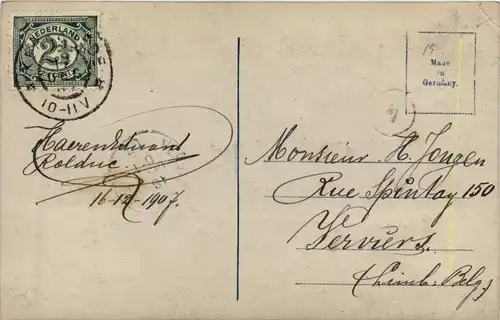 NEDERLAND
2½
CENT
10-11V
Made
in
Germany.
15
Rolduc
16-12-1907.
Monsieur H. Jongen
Rue Spintay 150
Verviers.
(Limb. Belg.)